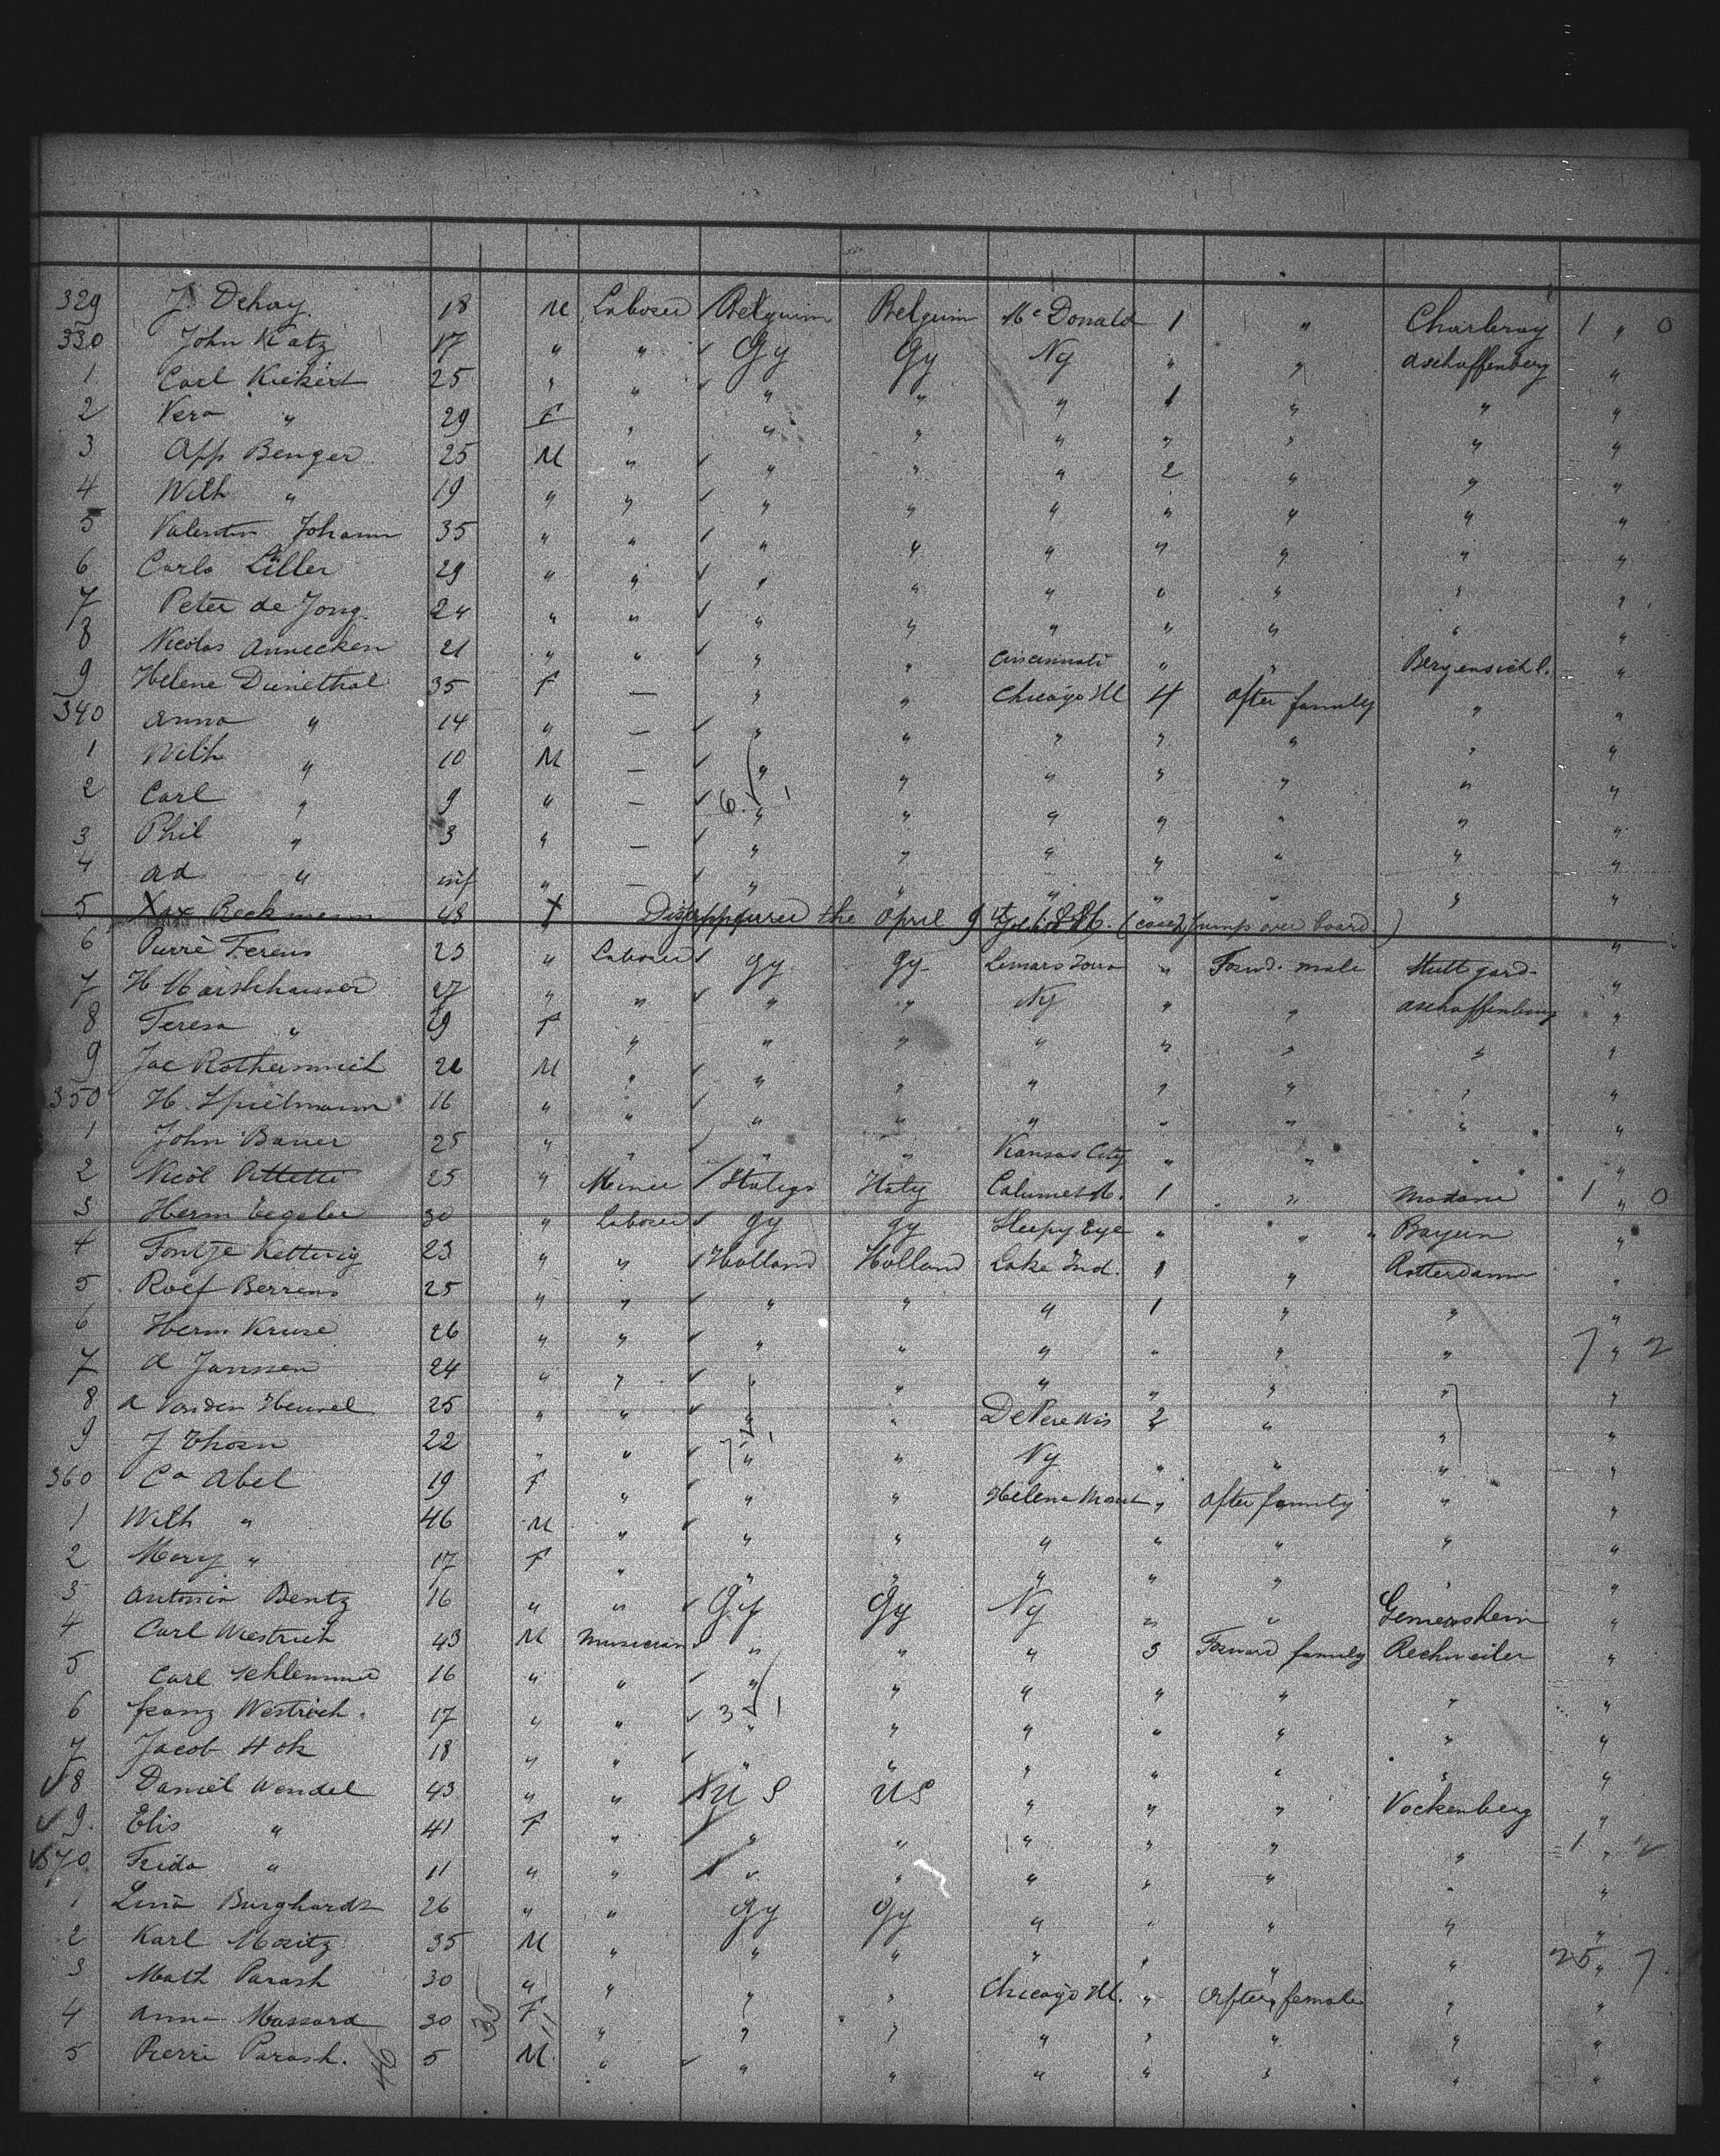 329 J Dehoy 18 M Laborer Belguim Belguim Mc Donald 1 " Charleroy 1 " 0
330 John Katz 17 " " Gy Gy Ny " " Aschaffenberg "
1 Carl Kiekert 25 " " " " " 1 " " "
2 Vera " 29 F " " " " " " " "
3 App Benger 25 M " " " " 2 " " "
4 Wilh " 19 " " " " " " " " "
5 Valentin Johann 35 " " " " " " " " "
6 Carlo Liller 29 " " " " " " " " "
7 Peter de Jong 24 " " " " " " " " "
8 Nicolas Annecken 21 " " " " Cincinnati " " "
9 Helene Dunethal 35 F — " " Chicago Ill 4 after family " "
340 Anna " 14 " — " " " " " " "
1 Wilh " 10 M — " " " " " " "
2 Carl " 9 " — 6 " " " " " " "
3 Phil " 3 " — " " " " " " "
4 Ad " inf " — " " " " " " "
5 Beckmann 48 Disappeared the April 9 (case jump over board)
6 Pierre Ferens 23 " Laborer Gy Gy Lemars Iowa " Forwd. male Stuttgard "
7 H 27 " " " " Ny " " Aschaffenburg "
8 Teresa " 19 F " " " " " " " "
9 Jac 26 M " " " " " " " "
350 H. Spielmann 16 " " " " " " " " "
1 John Bauer 25 " " " " Kansas City " " " "
2 Nicol 25 " Miner Italy Calumet 1 " Modane 1 " 0
3 Herm Tegeler 30 " Laborer Gy Gy Sleepy Eye " " " "
4 Fontje Kettwig 23 " " Holland Holland Lake Ind. 1 " Rotterdam "
5 Roef Berrens 25 " " " " " 1 " " "
6 Herm Kruse 26 " " " " " " " " 7 " 2
7 A Janssen 24 " " " " " " " " "
8 A Vanden Heuvel 25 " " " " De Pere Wis 2 " " "
9 J Thosn 22 " " 7 " " Ny " " " "
360 Ca Abel 19 F " " " Helena Mont " after family " "
1 Wilh " 46 M " " " " " " " "
2 Mary " 17 F " " " " " " " "
3 Antonia Bentz 16 " " Gy Gy Ny " " "
4 Carl Westrich 43 M Musician " " " 3 Forward family Rechweiler "
5 Carl Schlemmer 16 " " " " " " " " "
6 Franz Westrich 17 " " 3 " " " " " " "
7 Jacob Hok 18 " " " " " " " " "
8 Daniel Wendel 43 " " U S US " " " Vockenberg "
9. Elis " 41 F " " " " " " " 1 " 2
370 Frida " 11 " " " " " " " " "
1 Lina Burghardt 26 " " Gy Gy " " " " "
2 Karl Moritz 35 M " " " " " " " 25 " 7
3 Math Parash 30 " " " " Chicago Ill. " After female " "
4 Anna Massard 30 30 F " " " " " " " "
5 Pierre Parash. 46 5 M " " " " " " " "